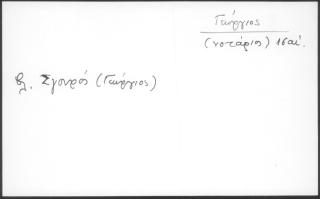 Γεώργιος
(νοτάριος) 16 αἰ.
βλ. Σγουρός (Γεώργιος)